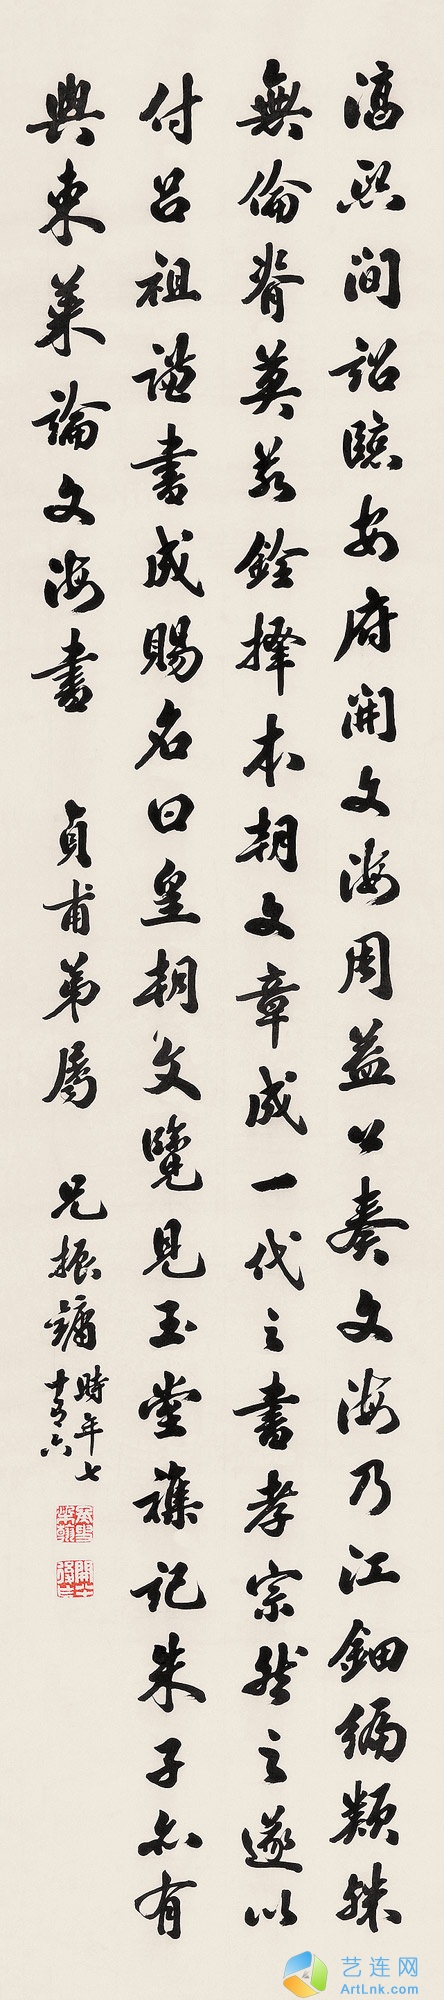 淳熙間詔臨安府開文海周益公奏文海乃江鈿編類殊
無倫脊莫若銓擇本朝文章成一代之書孝宗然之遂以
付呂祖謙書成賜名曰皇朝文覽見玉堂襍記朱子亦有
與東萊論文海書 貞甫弟屬 兄振
時年七
十有六
艺连网
ArtLnk.com